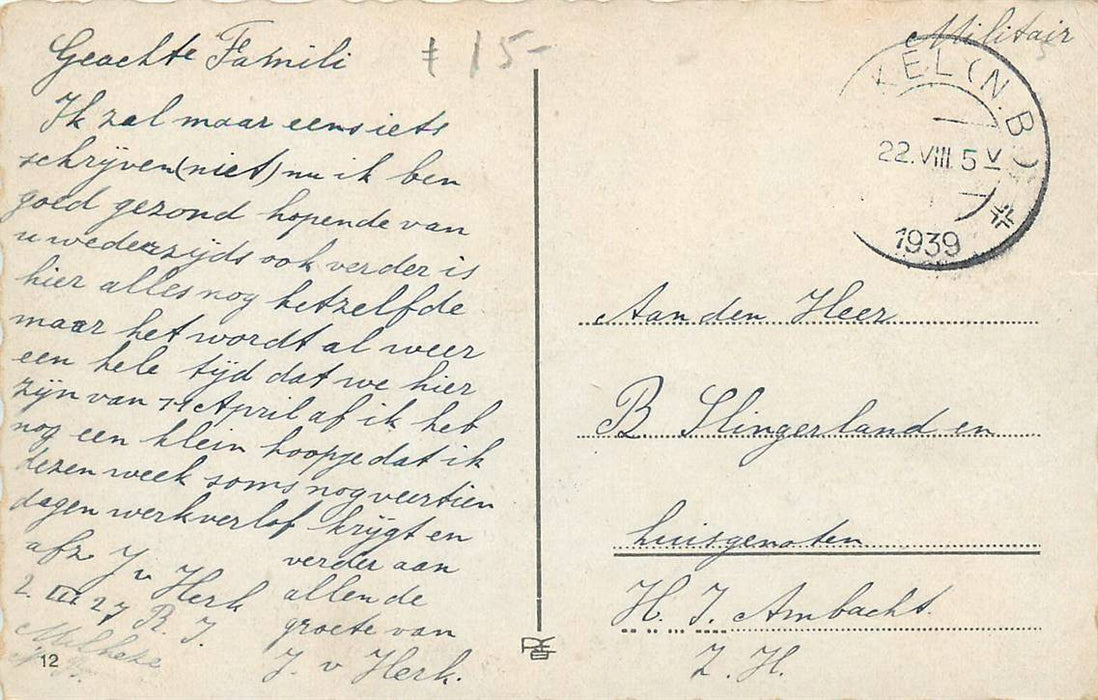 Geachte Famili
Ik zal maar eens iets
schrijven (niet) nu ik ben
goed gezond hopende van
u wederzijds ook verder is
hier alles nog hetzelfde
maar het wordt al weer
een hele tijd dat we hier
zijn van 11 April af ik heb
nog een klein hoopje dat ik
dezen week soms nog veertien
dagen werkverlof krijgt en
verder aan
allen de
groete van
J. v Herk.
afz J v Herk
2. III 27 R. J.
12
15-
Militair
KEL (N.B.)
22.VIII 5
1939
Aan den Heer
B Slingerland en
huisgenoten
H. J. Ambacht.
Z. H.